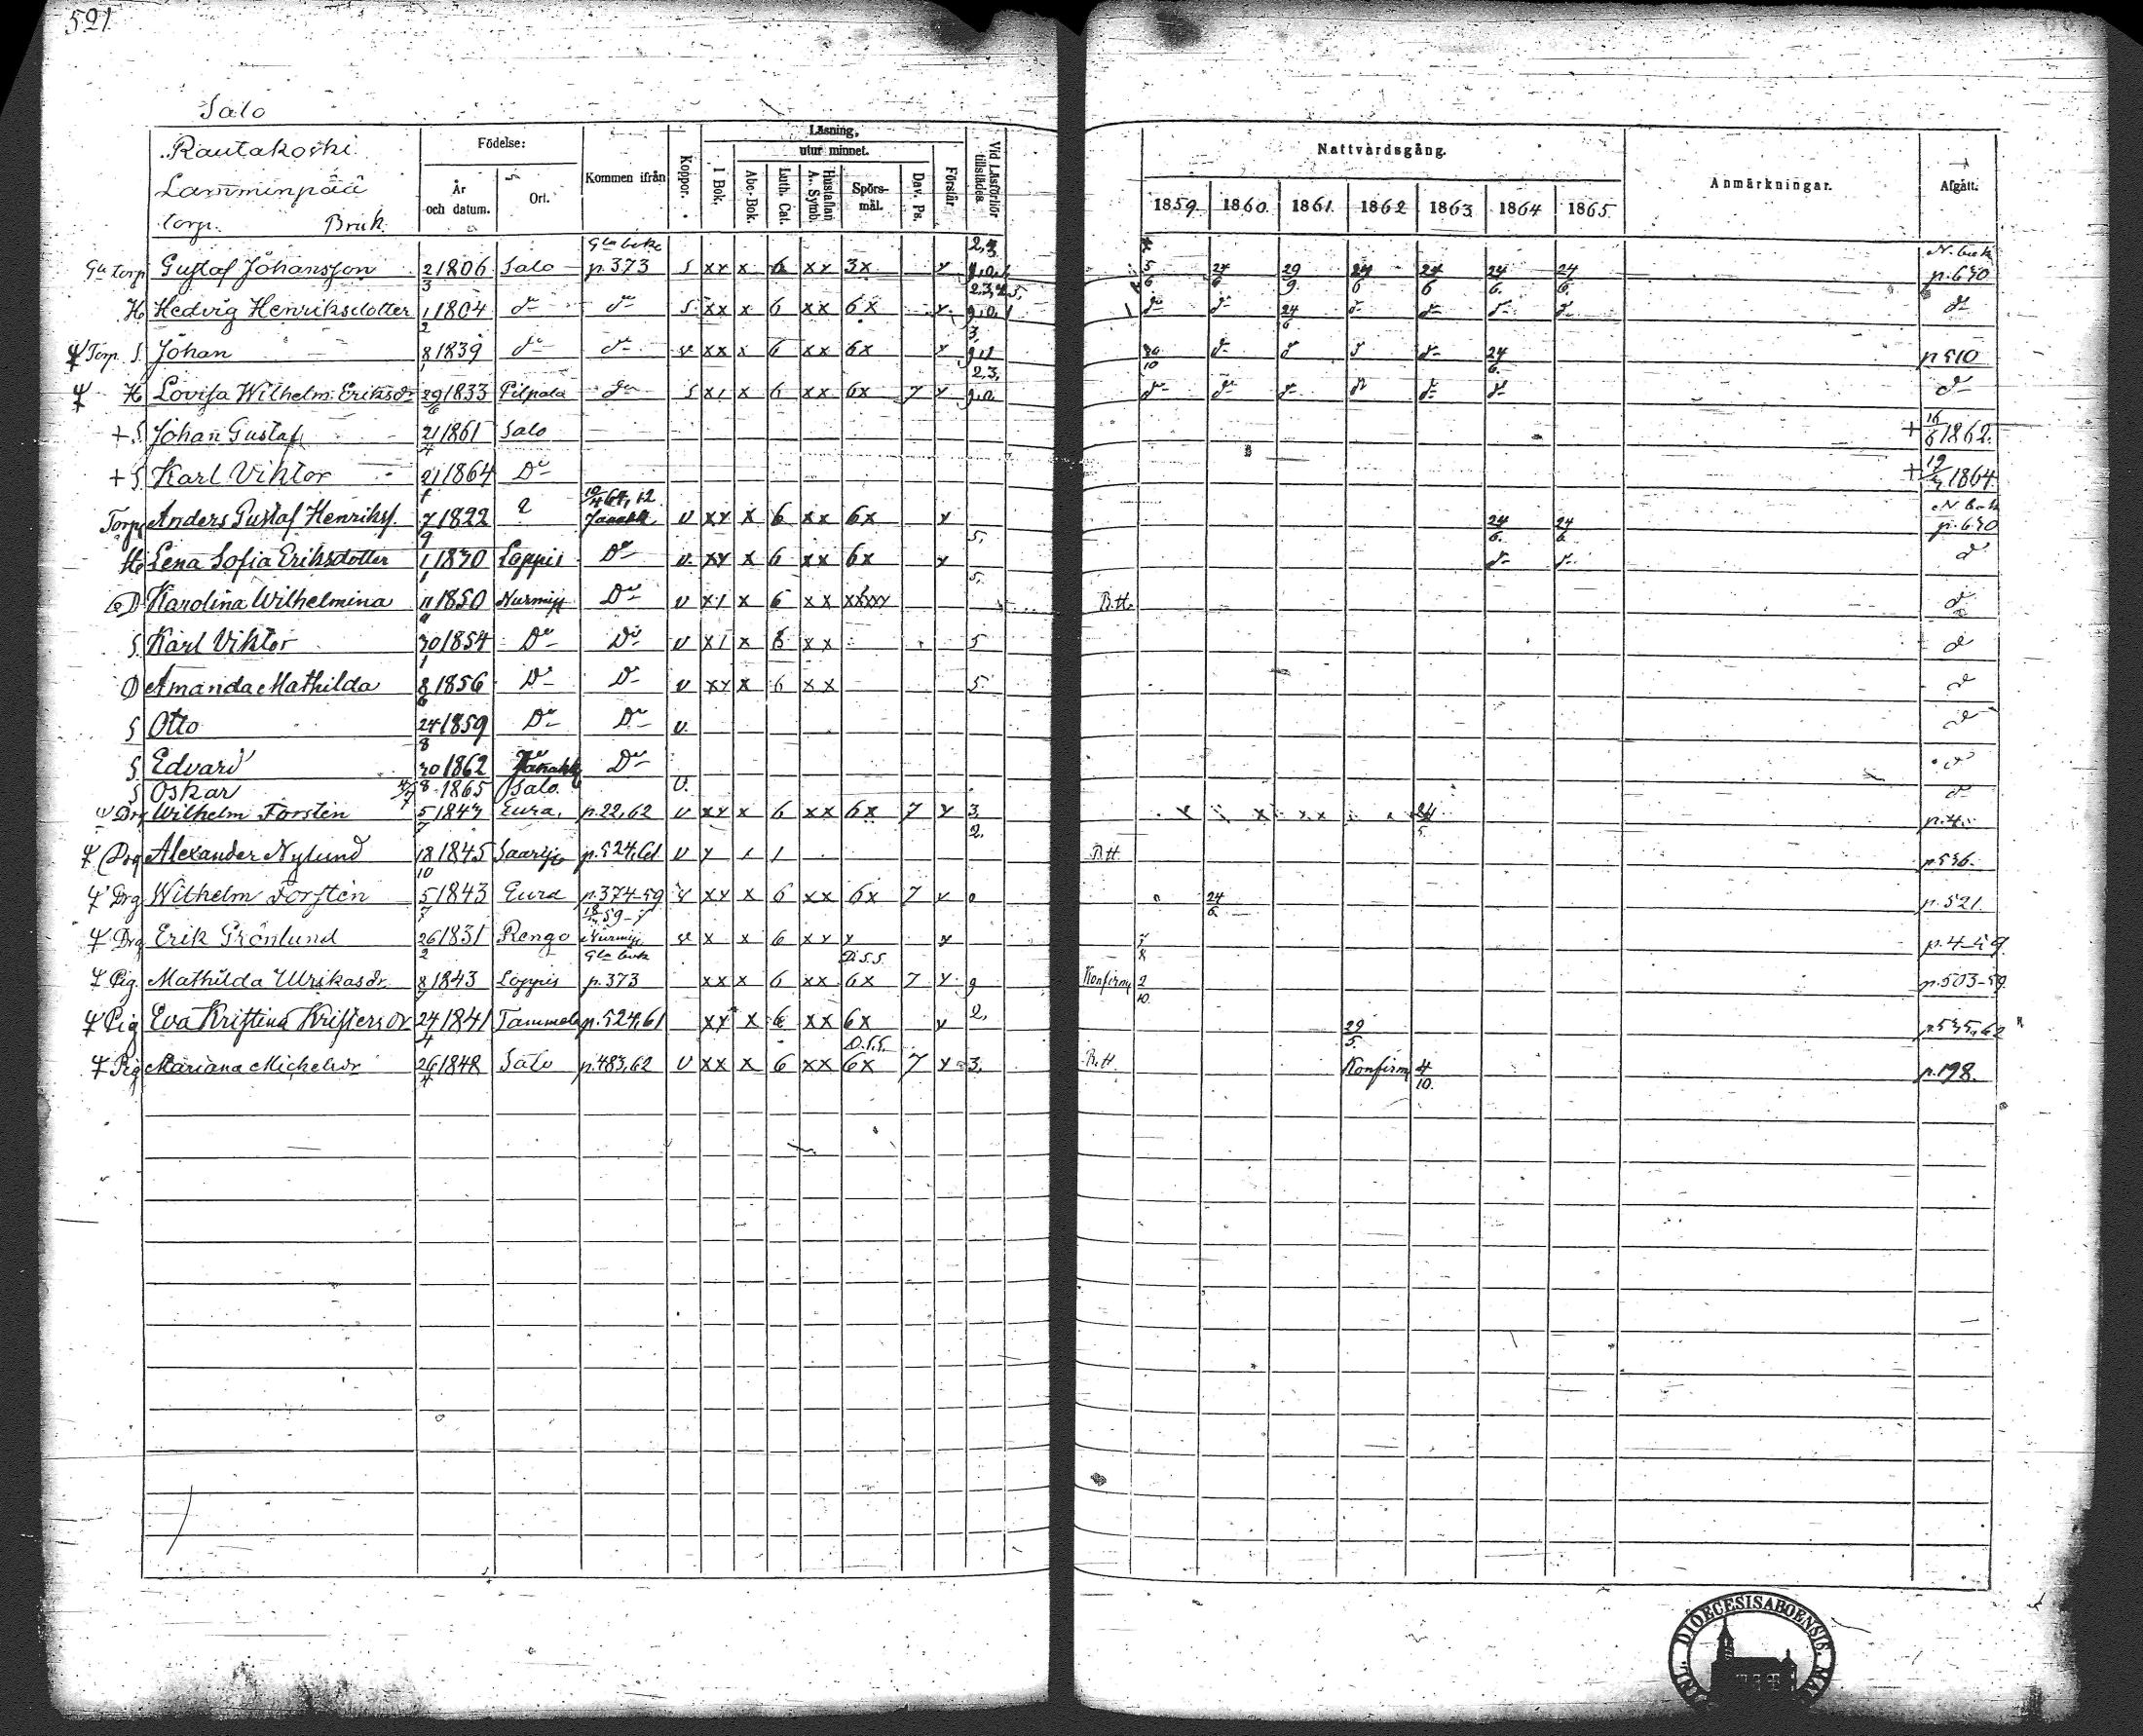 521.
Salo
Rautakoski
Lamminpää
torp. Bruk.
Födelse: År och datum. Ort. Kommen ifrån Koppor. Läsning, I Bok. utur minnet. Abc-Bok. Luth. Cat. Hustaflan A., Symb. Spörsmål. Dav. Ps. Förstår. Vid Läsförhör tillstädes. Nattvardsgång. 1859. 1860. 1861. 1862 1863. 1864 1865. Anmärkningar. Afgått.
Gla boks 2,3 N. bok
Gla torp Gustaf Johansson 2/3 1806 Salo p. 373 s xx x 6 xx 3x y 5/6 24/6 29/9 24/6 24/6 24/6 24/6 p. 670
H Hedvig Henriksdotter 1/2 1804 do do s xx x 6 xx 6x y do do 24/6 do do do do do
Torp. S. Johan 8/1 1839 do do v xx x 6 xx 6x y do do do do 24/6 p 510
H Lovisa Wilhelm. Eriksdr 29/6 1833 Pilpala do s x1 x 6 xx 6x 7 y do do do do do do do
+ S. Johan Gustaf 21/4 1861 Salo + 16/6 1862.
+ S Karl Viktor 21/1 1864 Do + 19/7 1864.
Torp Anders Gustaf Henrikss. 7/9 1822 64, 12 Janakk. v xx x 6 xx 6x y 5. 24/6 24/6 N. bok p. 670
H Lena Sofia Eriksdotter 1/1 1830 Loppis Do v. xx x 6 xx 6x y 5. do do do
D Karolina Wilhelmina 1850 Nurmijs Do v x1 x 6 xx xxxxx B.H. do
S. Karl Viktor 30/1 1854 Do Do v x1 x 6 xx 5 do
D Amanda Mathilda 8/6 1856 Do Do v xx x 6 xx 5. do
S Otto 24/8 1859 Do Do v. do
S Edvard 30 1862 Janakk Do do
S Oskar 8 1865 Salo. v. do
Drg Wilhelm Forsten 5/7 1843 Eura, p. 22, 62 v xx x 6 xx 6x 7 y 3, 24/5 p. 4.
Drg Alexander Nylund 18/10 1845 Saarijs p. 524, 61 v y 1 1 2. B.H. p 536.
Drg Wilhelm Forstén 5/7 1843 Eura p. 374-59 v xx x 6 xx 6x 7 y 24/6 p. 521.
Drg Erik Grönlund 26/2 1831 Rengo Nurmijs v x x 6 xx y y p. 4-59.
Gla bok D.S.S.
Pig. Mathilda Ulrikasdr. 8/7 1843 Loppis p. 373 xx x 6 xx 6x 7 y 9 Konfirm. 2/10 p. 503-59
Pig Eva Kristina Kristersdr 24/4 1841 Tammela p. 524, 61 xx x 6 xx 6x y 2, 29/5 p 535, 62
D.S.S.
Pig Mariana Michelsdr 26/4 1848 Salo p. 483, 62 v xx x 6 xx 6x 7 y 3, B.H. Konfirm 4/10. p. 198.
DIOECESISABOENSIS